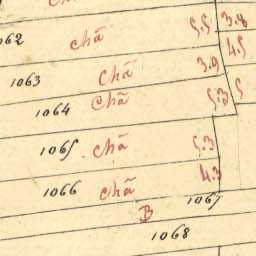 1062 chã 5.5 3.8
4.5
1063 chã 3.9
1064 chã 5.3 5
1065 chã 5.3
1066 chã 4.3
1067
B
1068